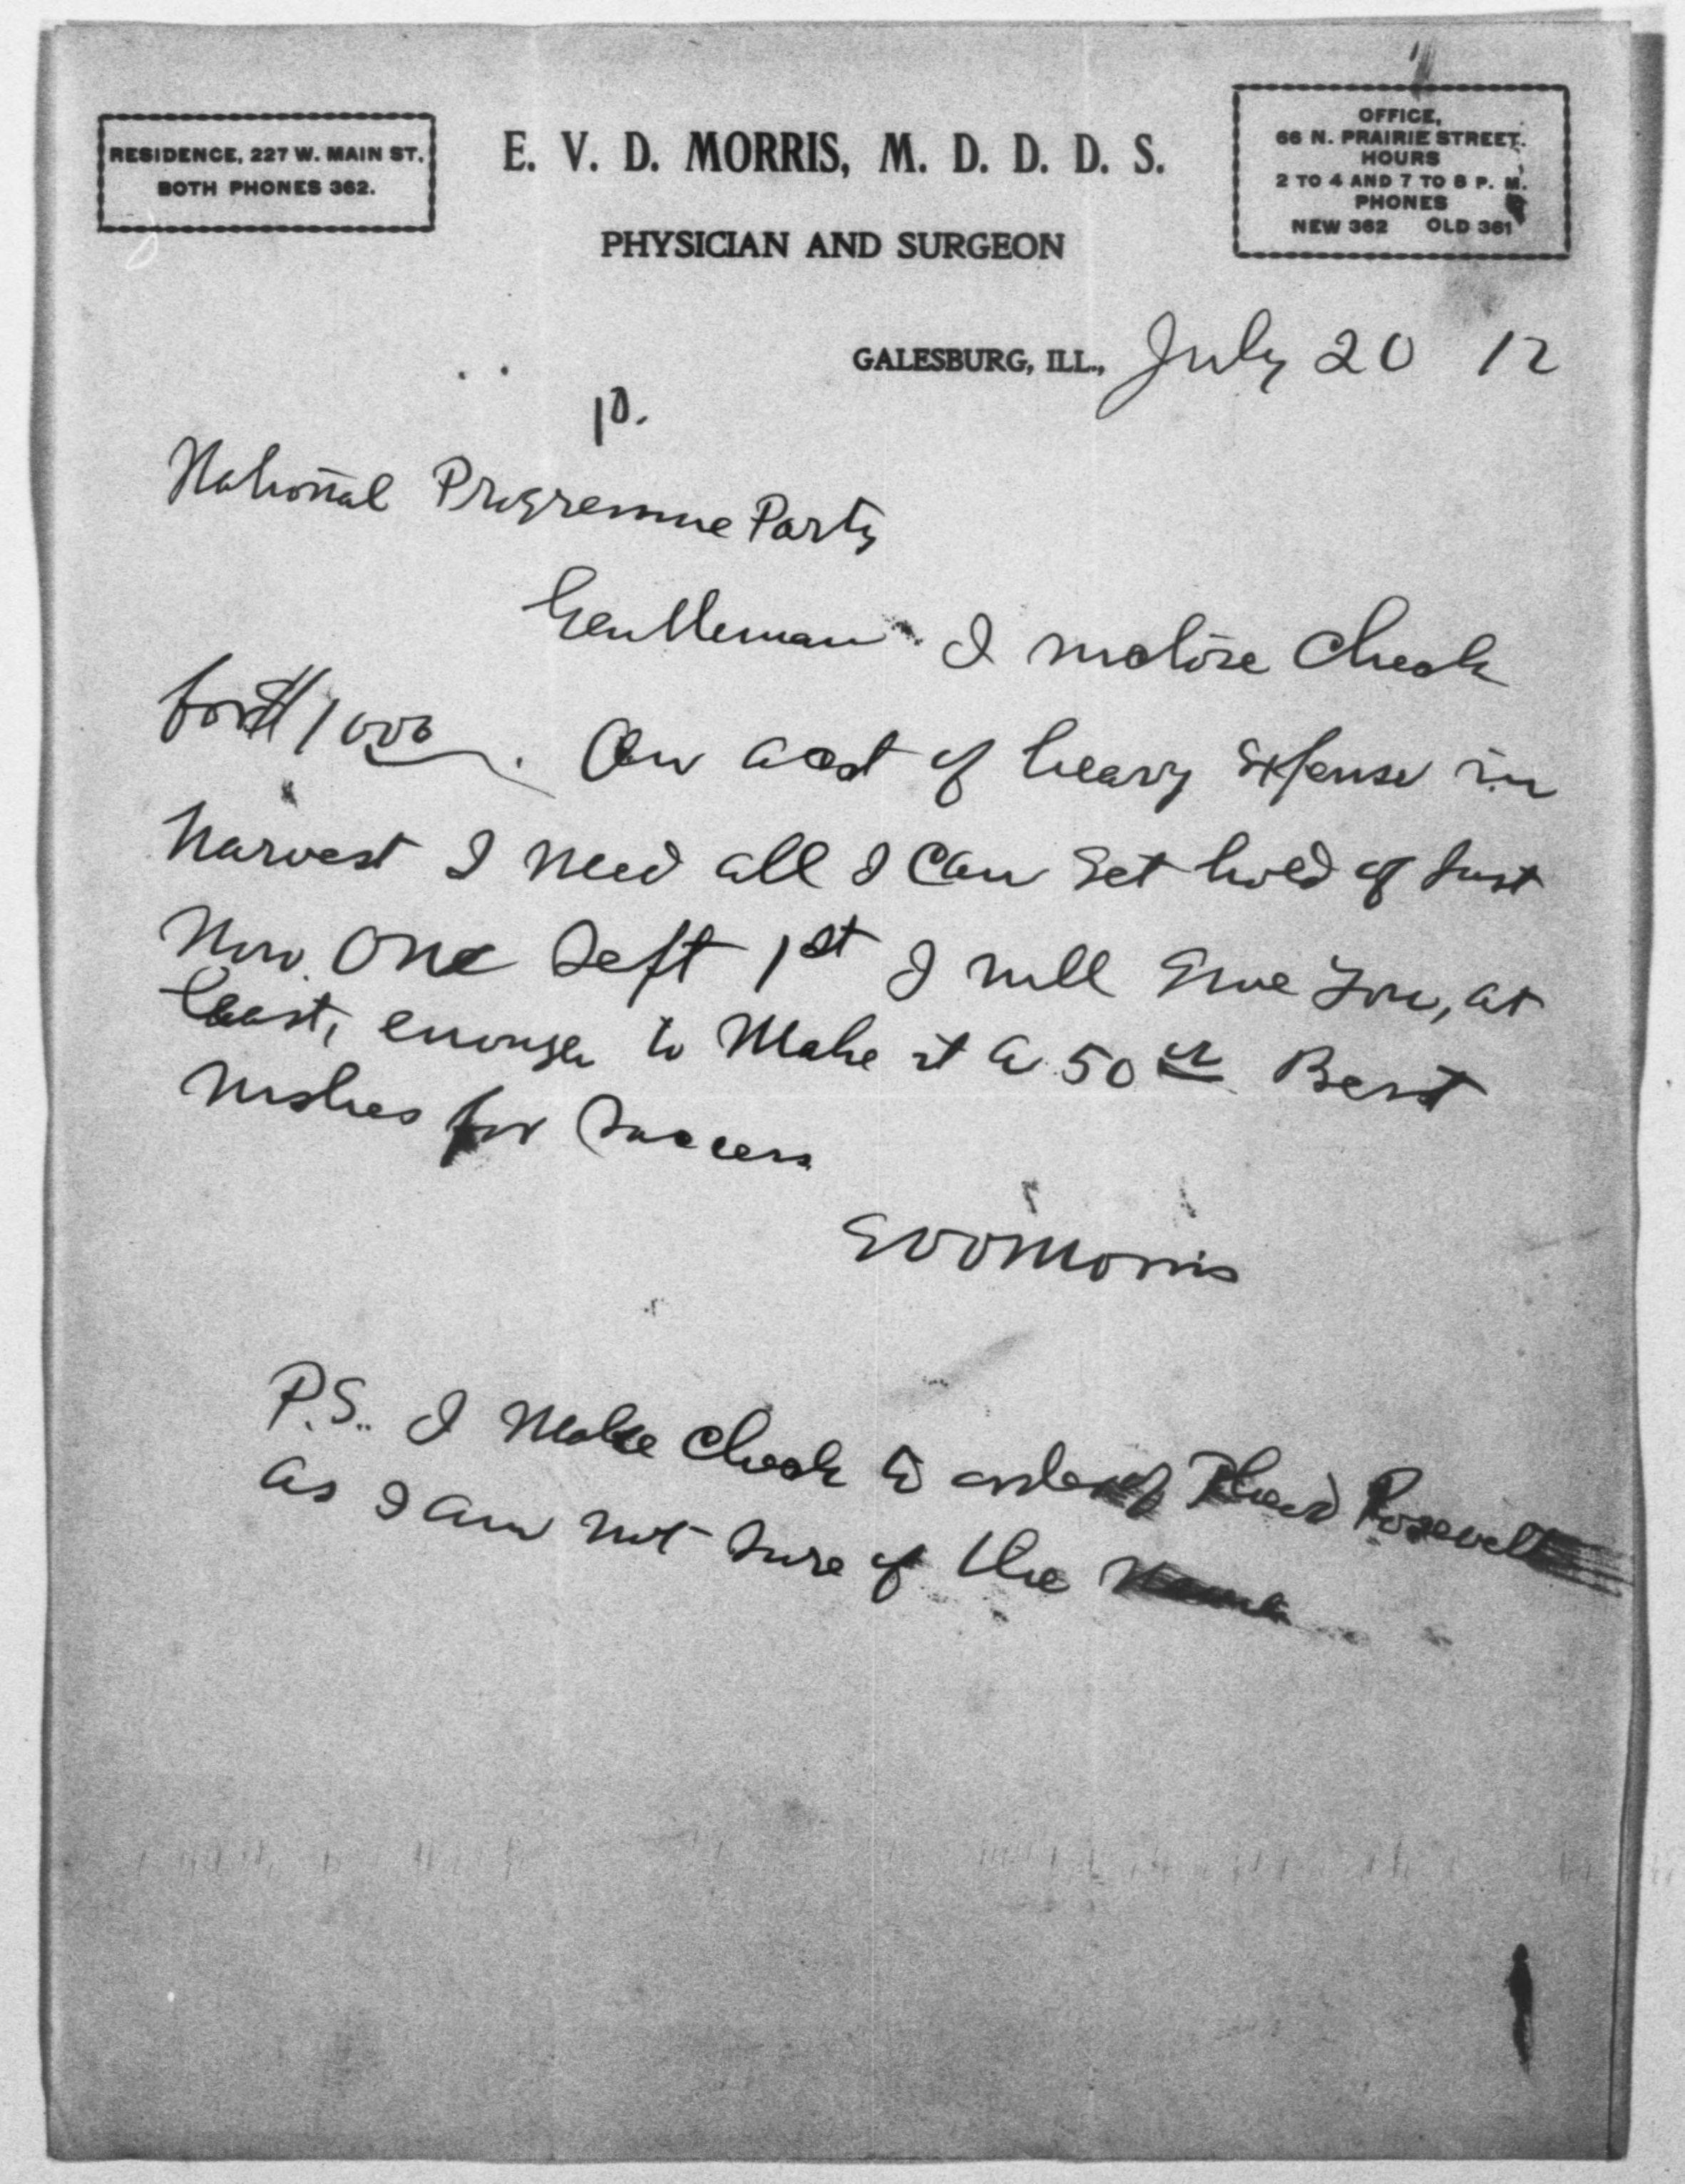 RESIDENCE, 227 W. MAIN ST.
BOTH PHONES 362.
E. V. D. MORRIS, M. D. D. D. S.
PHYSICIAN AND SURGEON
OFFICE,
66 N. PRAIRIE STREET.
HOURS
2 TO 4 AND 7 TO 8 P. M.
PHONES
NEW 362 OLD 361
GALESBURG, ILL., July 20 12
National Progressive Party
Gentleman. I inclose Check
for $10 00. On acct of heavy Expense in
Harvest I need all I can get hold of Just
Now. One Sept 1st I will give you, at
least, enough to Make it a 50 Best
wishes for Success
EVDMorris
P.S. I Make Check to order of Roosevelt
as I am not sure of the